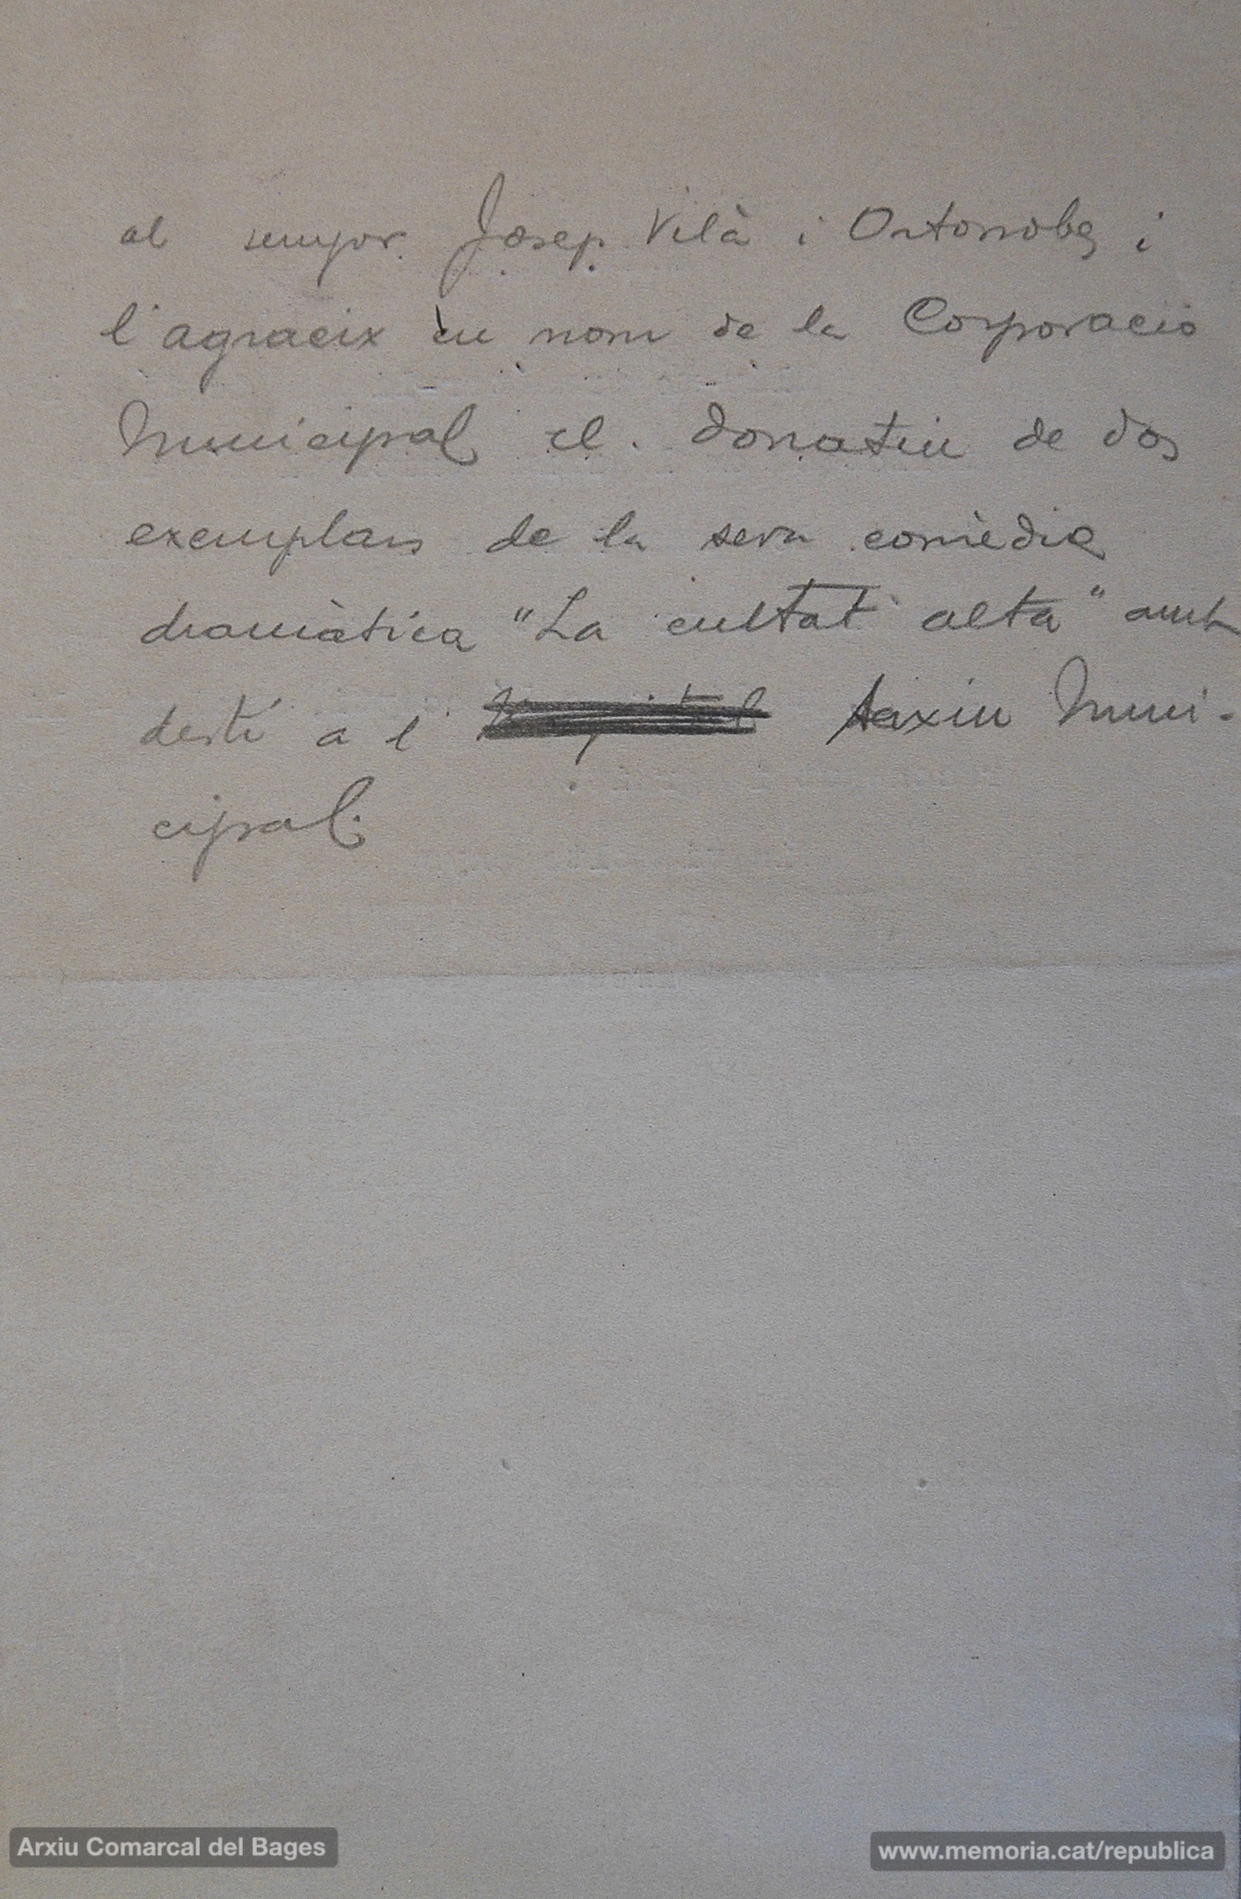 al senyor Josep Vilà i Ortonobes i
l'agraeix en nom de la Corporacio
Municipal el donatiu de dos
exemplars de la seva comèdia
dramàtica "La cultat alta" amb
destí a l' Arxiu Muni-
cipal.
Arxiu Comarcal del Bages
www.memoria.cat/republica